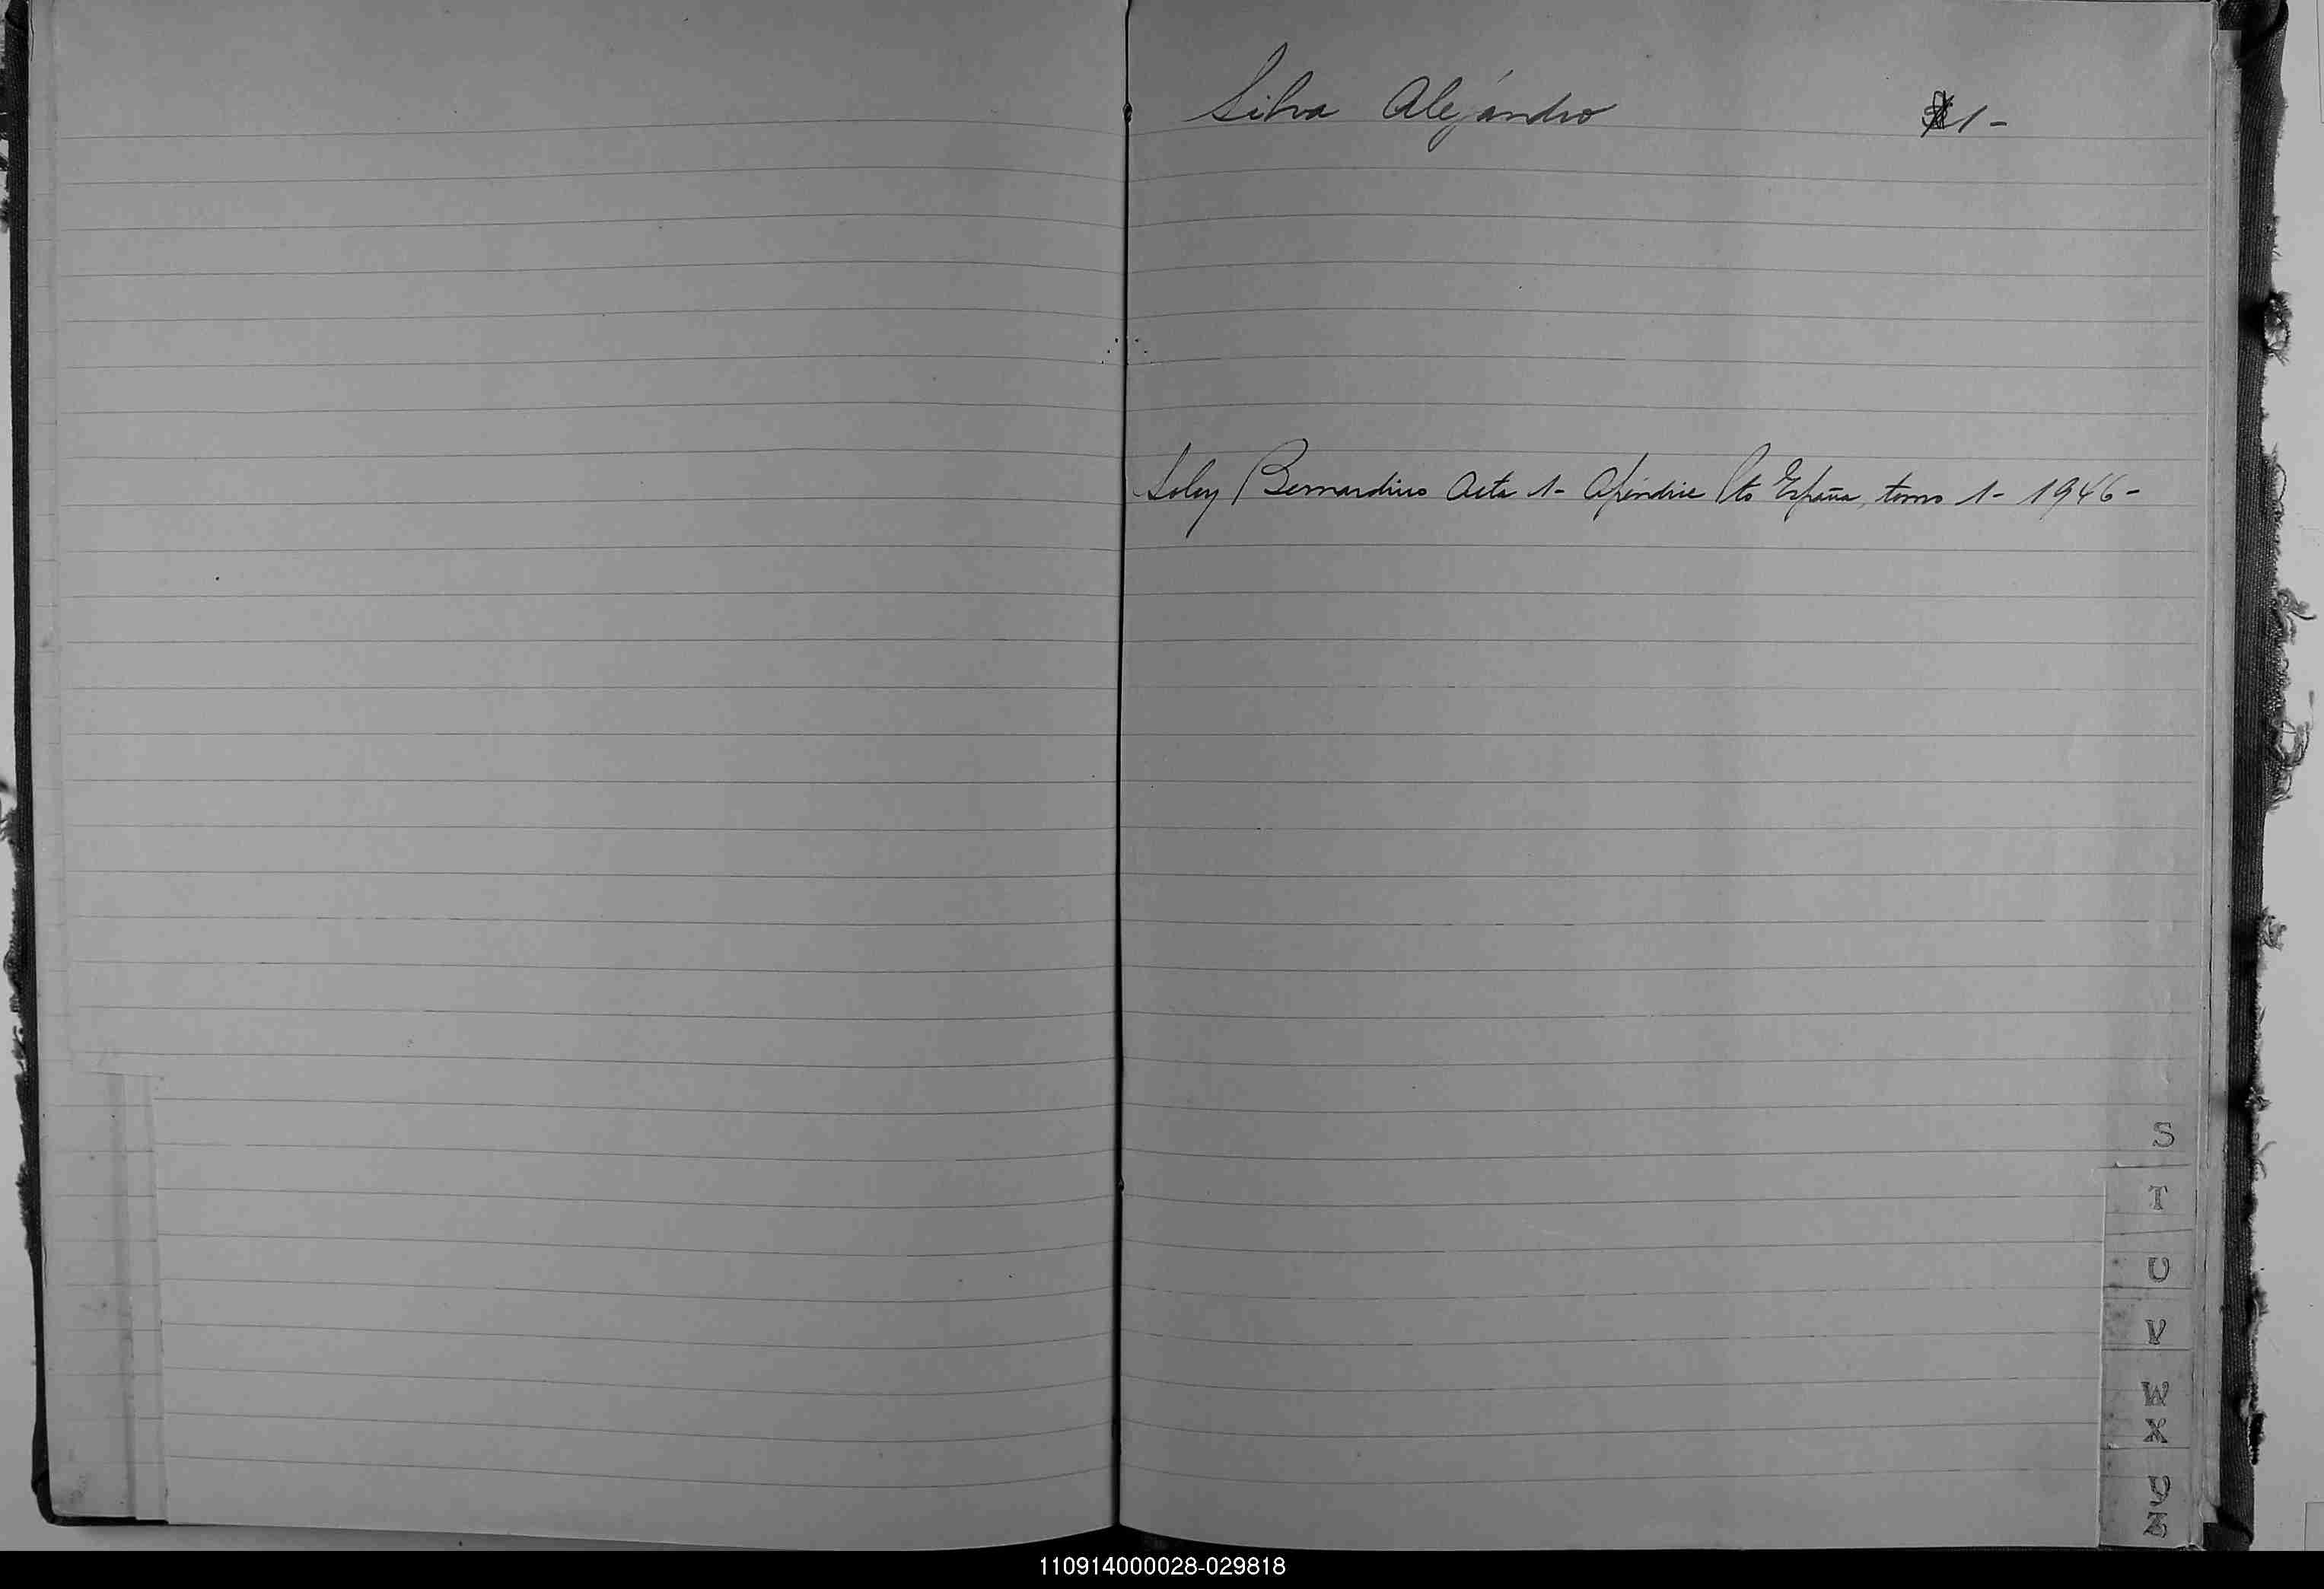 Silva Alejandro 1-
Soley Bernardino Acta 1- Apéndice Pto España, tomo 1- 1946-
S
T
U
V
W
X
110914000028-029818